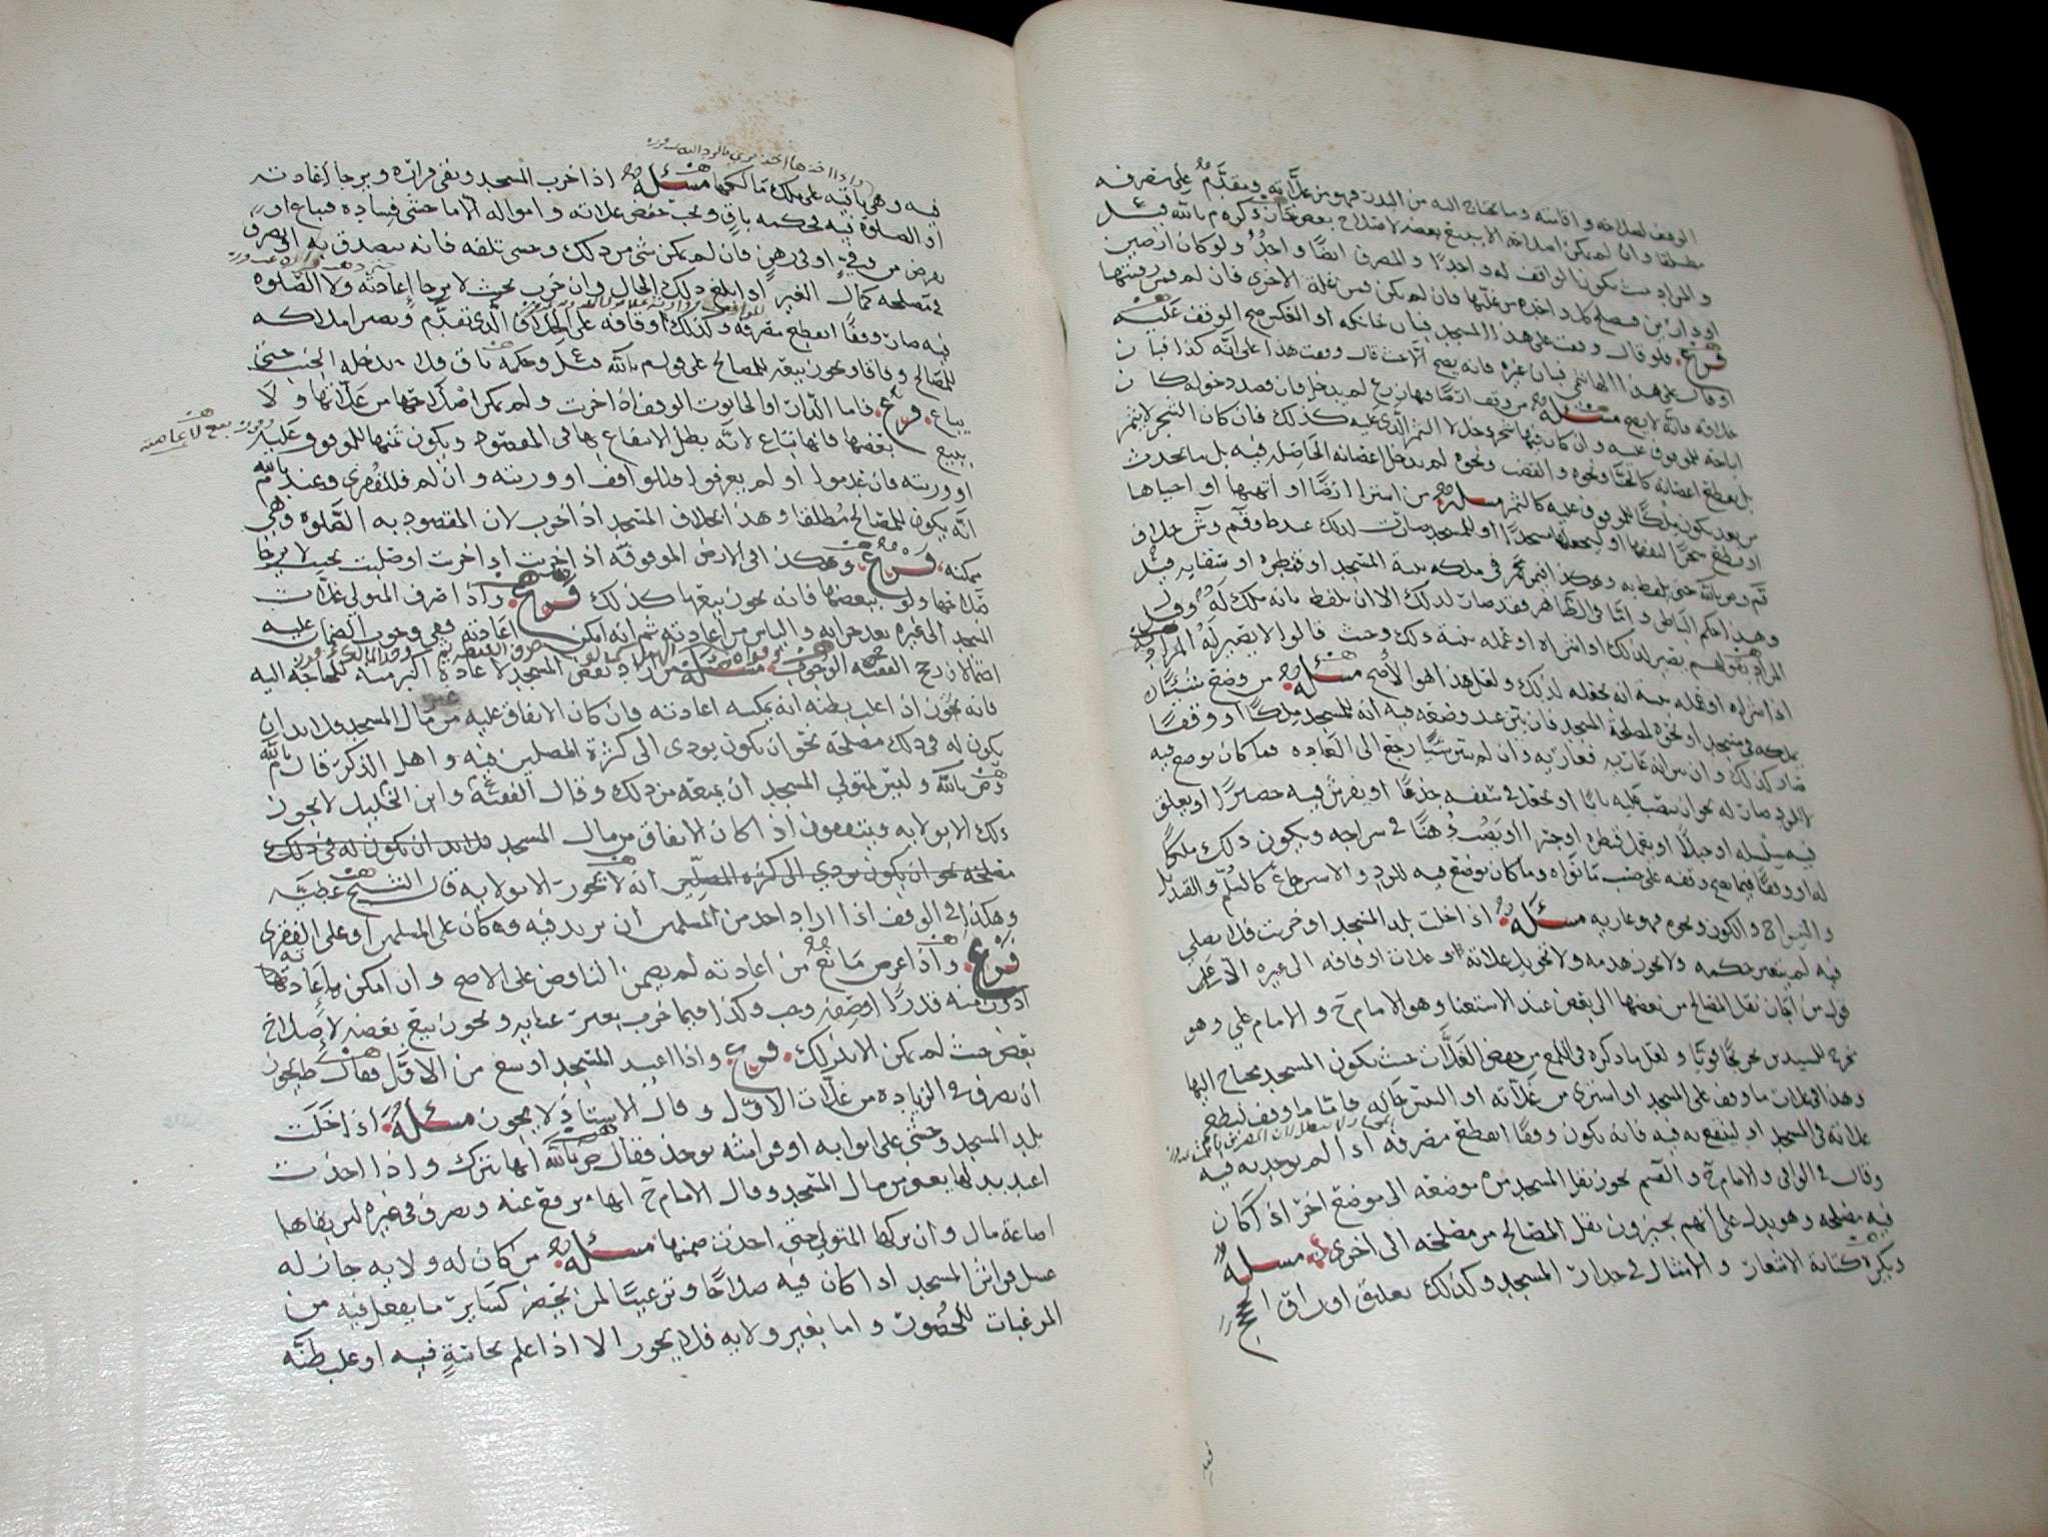 الوقف لصلاحه واقامته وما يحتاج اليه من البذر فهو من غلاته ويقدم على مصرفه
مطلقا وان لم يمكن اصلاحه الا ببيع بعضه لاصلاح بعض جاز ذكره م بالله قيل
والمراد حيث يكون الواقف له واحدا والمصرف ايضا واحد ولو كان ارضين
او دارين فيصلح كل واحدة من غلتها فان لم يكن فمن غلة الاخرى فان لم فمن رقبتها
فرع فلو قال وقفت على هذا المسجد فبان خانكه او العكس صح الوقف عليه
او قال على هذا الهاشمي فبان غيره فانه يصح الا حيث قال وقفت هذا على انه كذا فبان
خلافه فانه لا يصح مسئله من وقف ارضا فيها زرع لم يدخل فان قصد دخوله كان
اباحة للموقوف عليه وان كان فيها شجر دخل لا الثمر الذي عليه كذلك فان كان الشجر لا يثمر
بل يقطع اغصانه كالحنا ونحوه والقضب ونحوه لم يدخل اغصانه الحاصله فيه بل ما يحدث
من بعد يكون ملكا للموقوف عليه كالثمر مسله من اشترا ارضا او اتهبها او احياها
او قطع شجرا لنفعها او ليجعلها مسجدا او للمسجد صارت لذلك عند ط وقم وش خلاف
قم وص بالله حتى يلفظ به وهكذا فيمن عمر في ملكه بنية المسجد او قنطره او سقايه قيل
وهذا حكم الباطن واما في الظاهر فقد صار لذلك الا ان يلفظ بانه ملك له وقيل
المراد بقولهم يصير لذلك اذا اشتراه او عمله بنية ذلك وحيث قالوا لا يصير له المراد به
اذا اشتراه او عمله بنية انه يجعله لذلك ولعل هذا هو الاصح مسئله من وضع شيئا
يملكه في مسجد او نحوه لمصلحة المسجد فان بين عند وضعه فيه انه للمسجد ملكا او وقفا
صار كذلك وان بين انه عاريه فعاريه وان لم يبين شيئا رجع الى العاده فما كان يوضع فيه
لا للرد صار له نحو ان ينصب عليه بابا او يجعل في سقفه جذعا او يفرش فيه حصيرا او يعلق
فيه سلسله او حبلا او يعمل قنطره او جسرا او يصب دهنا في سراجه ويكون ذلك ملكا
له او وقفا فيما يصح وقفه على حسب ما نواه وما كان يوضع فيه للرد والاسترجاع كالسلم والقنديل
والسراج والكوز ونحوه فهو عاريه مسئله اذا خلت بلد المسجد او خربت فلا يصلى
فيه لم يتغير حكمه ولا يجوز هدمه ولا تحويل غلاته او غلات اوقافه الى غيره الا على
قول من اجاز نقل المصالح من بعضها الى بعض عند الاستغنا وهو الامام ح والامام علي وهو
تخرج للسيدين تخريجا قويا ولعل ما ذكره في اللمع من حفظ الغلات حيث يكون المسجد يحتاج اليها
وهذا في غلات ما وقف على المسجد او اشتري من غلاته او التبس حاله فاما ما وقف لتطرح
غلاته في المسجد او لينتفع به فيه فانه يكون وقفا انقطع مصرفه اذا لم يوجد به فيه
وقال في الوافي والامام ح والقسم يجوز نقل المسجد من موضعه الى موضع اخر اذا كان
فيه مصلحه وهو يدل على انهم يجيزون نقل المصالح من مصلحه الى اخرى مسله
ويكره كتابة الاشعار والامثال في جدار المسجد وكذلك تعليق اوراق الحج
فيه
فيه وهي باقيه على ملك مالكها مسئله اذا خرب المسجد وبقي قراره ويرجا اعادته
او الصلاة فيه فحكمه باق ويجب حفظ غلاته وامواله الا ما خشي فساده فيباع او
يقرض من وفي او في رهن فان لم يمكن شي من ذلك وخشي تلفه فانه يتصدق به او يصرف
في مصلحه كمال الغير اذا بلغ ذلك الحال وان خرب بحيث لا يرجا اعادته ولا الصلوه
فيه صار وقفا انقطع مصرفه وكذلك اوقافه على الخلاف الذي تقدم ويصير املاكه
للمصالح وفاقا ويجوز بيعه للمصالح على قول م بالله قيل وحكمه باق فلا يدخله الجنب حتى
يباع فرع فاما الدار او الحانوت الوقف اذا خربت ولم يمكن اصلاحها من غلاتها ولا
ببيع بعضها فانها تباع لانه بطل الانتفاع بها في المقصود ويكون ثمنها للموقوف عليه
او ورثته فان عدموا او لم يعرفوا فللواقف او ورثته وان لم فللفقرى وعند م بالله
انه يكون للمصالح مطلقا وهذا بخلاف المسجد اذا خرب لان المقصود به الصلوه وهي
ممكنه فرع وهكذا في الارض الموقوفه اذا خربت او صلبت بحيث لا يرجا
صلاحها ولو ببعضها فانه يجوز بيعها كذلك فرع واذا صرف المتولي غلات
المسجد الى غيره بعد خرابه والياس من اعادته ثم انه امكن اعادته ففي وجوب الضمان عليه
احتمالان رجح الفقيه الوجوب مسئله من اراد نقض المسجد لاعادة اكبر منه للحاجه اليه
فانه يجوز اذا غلب بظنه انه يمكنه اعادته فان كان الانفاق عليه من مال المسجد فلا بد ان
يكون له في ذلك مصلحه نحو ان يكون يودي الى كثرة المصلين فيه واهل الذكر قال م بالله
وص بالله وليس لمتولي المسجد ان يمنعه من ذلك وقال الفقيه وابن الخليل لا يجوز
ذلك الا بولايه وينتقضون اذا كان الانفاق من مال المسجد فلا بد ان يكون له في ذلك
مصلحه نحو ان يكون يودي الى كثرة المصلين انه لا يجوز الا بولايه قال الشيخ عطيه
وهكذا في الوقف اذا اراد احد من المسلمين ان يزيد فيه وكان على المسلمين او على الفقرى
فرع واذا عرض مانع من اعادته لم يضمن الناقض على الاصح وان امكن اعادته
ادون منه قدرا او صفه وجب وكذا فيما خرب بغير عنايه ويجوز بيع بعضه لاصلاح
بعض حيث لم يمكن الا بذلك فرع واذا اعيد المسجد اوسع من الاول فقال ط يجوز
ان يصرف في الزياده من غلات الاول وقال الاستاذ لا يجوز مسئله اذا خلت
بلد المسجد وخشي على ابوابه او فراشه يوخذ فقال ص بالله انها تترك واذا اخذت
اعيد بدلها يعوض من مال المسجد وقال الامام ح انها ترفع عنه وتصرف في غيره لئن بقاها
اضاعة مال وان تركها المتولي حتى اخذت ضمنها مسئله من كان له ولايه جاز له
غسل فراش المسجد اذا كان فيه صلاحا وترغيبا لمن يحضر كساير ما يفعل فيه من
المرغبات للحضور واما بغير ولايه فلا يجوز الا اذا علم نجاسة فيه او غلب ظنه